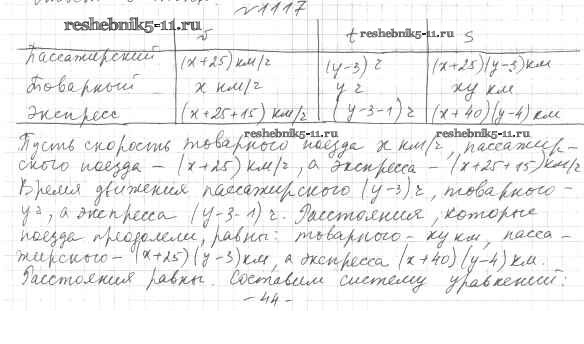 №1117
reshebnik5-11.ru
v t s
reshebnik5-11.ru
Пассажирский (x+25) км/ч (y-3) ч (x+25)(y-3) км
Товарный x км/ч y ч xy км
Экспресс (x+25+15) км/ч (y-3-1) ч (x+40)(y-4) км
reshebnik5-11.ru
Пусть скорость товарного поезда x км/ч, пассажир-
ского поезда – (x+25) км/ч, а экспресса – (x+25+15) км/ч
Время движения пассажирского (y-3) ч, товарного –
y ч, а экспресса (y-3-1) ч. Расстояния, которые
поезда преодолели, равны: товарного – xy км, пасса-
жирского – (x+25)(y-3) км, а экспресса (x+40)(y-4) км.
Расстояния равны. Составим систему уравнений:
-44-